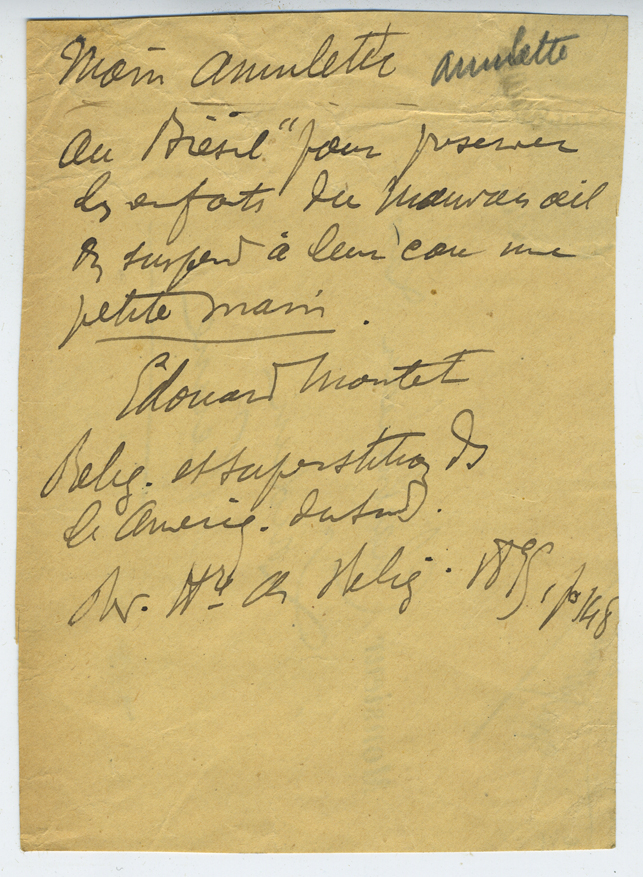 Main amulette amulette
Au Brésil "pour preserver
les enfants du mauvais œil
on suspend à leur cou une
petite main.
Edouard Montet
Relig. et superstitions de
l'Ameriq. du Sud.
Rev. Hre des Relig. 1895, p 148